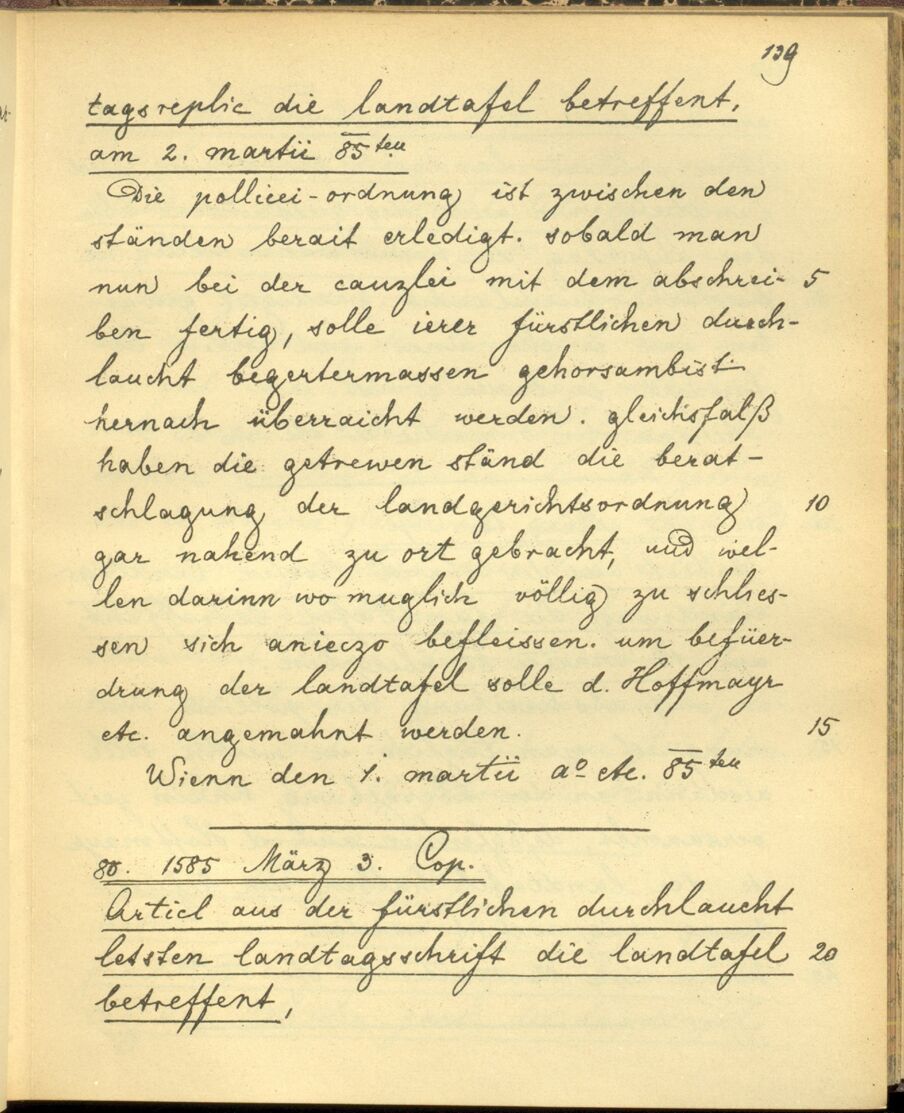 139
tagsreplic die landtafel betreffent,
am 2. martii 85ten
Die pollicei-ordnung ist zwischen den
ständen berait erledigt. sobald man
nun bei der canzlei mit dem abschrei- 5
ben fertig, solle ierer fürstlichen durch-
laucht begertermassen gehorsambist
hernach überraicht werden. gleichsfalß
haben die getrewen ständ die berat-
schlagung der landgerichtsordnung 10
gar nahend zu ort gebracht, und wel-
len darinn wo muglich völlig zu schlies-
sen sich aniezo befleissen. um befüer-
drung der landtafel solle d. Hoffmayr
etc. angemahnt werden. 15
Wienn den 1. martii aº etc. 85ten
80. 1585 März 3. Cop.
Articl aus der fürstlichen durchlaucht
letsten landtagsschrift die landtafel 20
betreffent,